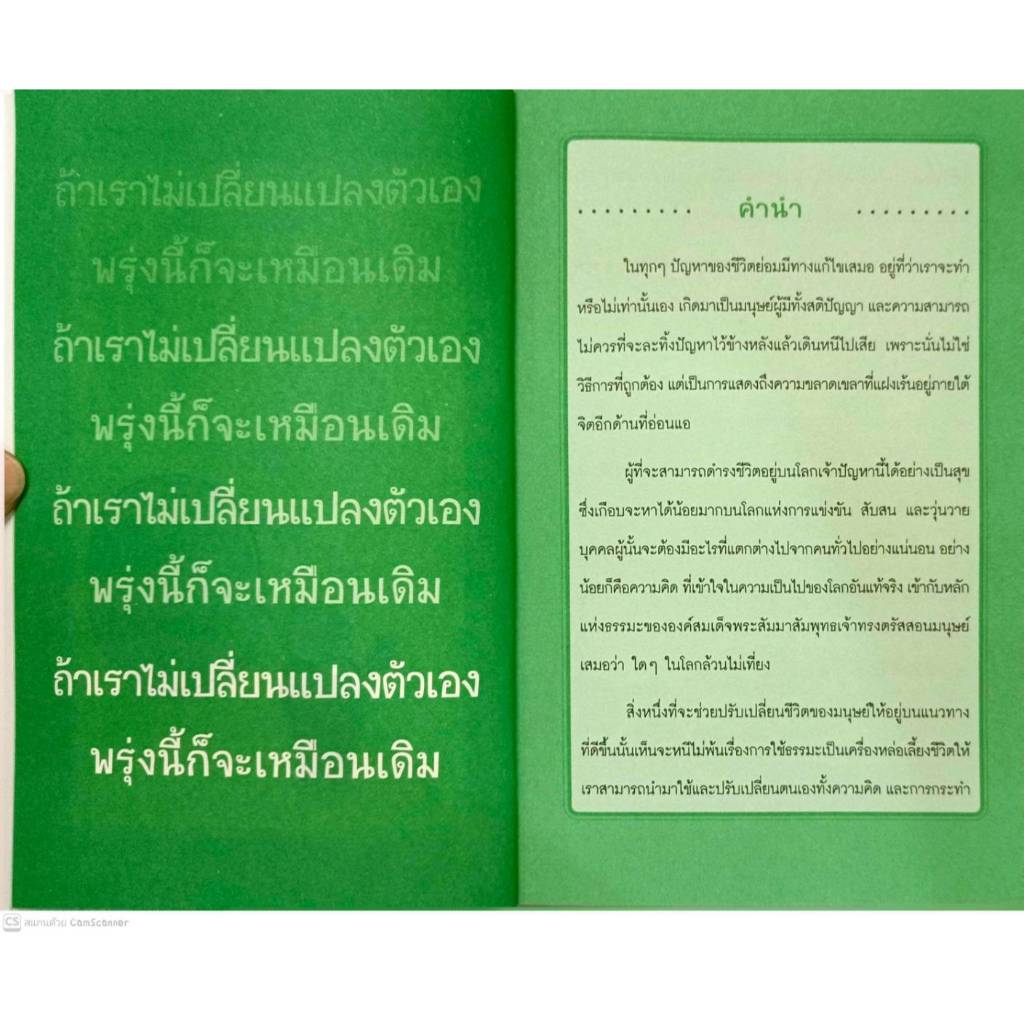 ถ้าเราไม่เปลี่ยนแปลงตัวเอง
พรุ่งนี้ก็จะเหมือนเดิม
ถ้าเราไม่เปลี่ยนแปลงตัวเอง
พรุ่งนี้ก็จะเหมือนเดิม
ถ้าเราไม่เปลี่ยนแปลงตัวเอง
พรุ่งนี้ก็จะเหมือนเดิม
ถ้าเราไม่เปลี่ยนแปลงตัวเอง
พรุ่งนี้ก็จะเหมือนเดิม
......... คำนำ .........
ในทุกๆ ปัญหาของชีวิตย่อมมีทางแก้ไขเสมอ อยู่ที่ว่าเราจะทำ
หรือไม่เท่านั้นเอง เกิดมาเป็นมนุษย์ผู้มีทั้งสติปัญญา และความสามารถ
ไม่ควรที่จะละทิ้งปัญหาไว้ข้างหลังแล้วเดินหนีไปเสีย เพราะนั่นไม่ใช่
วิธีการที่ถูกต้อง แต่เป็นการแสดงถึงความขลาดเขลาที่แฝงเร้นอยู่ภายใต้
จิตอีกด้านที่อ่อนแอ
ผู้ที่จะสามารถดำรงชีวิตอยู่บนโลกเจ้าปัญหานี้ได้อย่างเป็นสุข
ซึ่งเกือบจะหาได้น้อยมากบนโลกแห่งการแข่งขัน สับสน และวุ่นวาย
บุคคลผู้นั้นจะต้องมีอะไรที่แตกต่างไปจากคนทั่วไปอย่างแน่นอน อย่าง
น้อยก็คือความคิด ที่เข้าใจในความเป็นไปของโลกอันแท้จริง เข้ากับหลัก
แห่งธรรมะขององค์สมเด็จพระสัมมาสัมพุทธเจ้าทรงตรัสสอนมนุษย์
เสมอว่า ใดๆ ในโลกล้วนไม่เที่ยง
สิ่งหนึ่งที่จะช่วยปรับเปลี่ยนชีวิตของมนุษย์ให้อยู่บนแนวทาง
ที่ดีขึ้นนั้นเห็นจะหนีไม่พ้นเรื่องการใช้ธรรมะเป็นเครื่องหล่อเลี้ยงชีวิตให้
เราสามารถนำมาใช้และปรับเปลี่ยนตนเองทั้งความคิด และการกระทำ
CS สแกนด้วย CamScanner